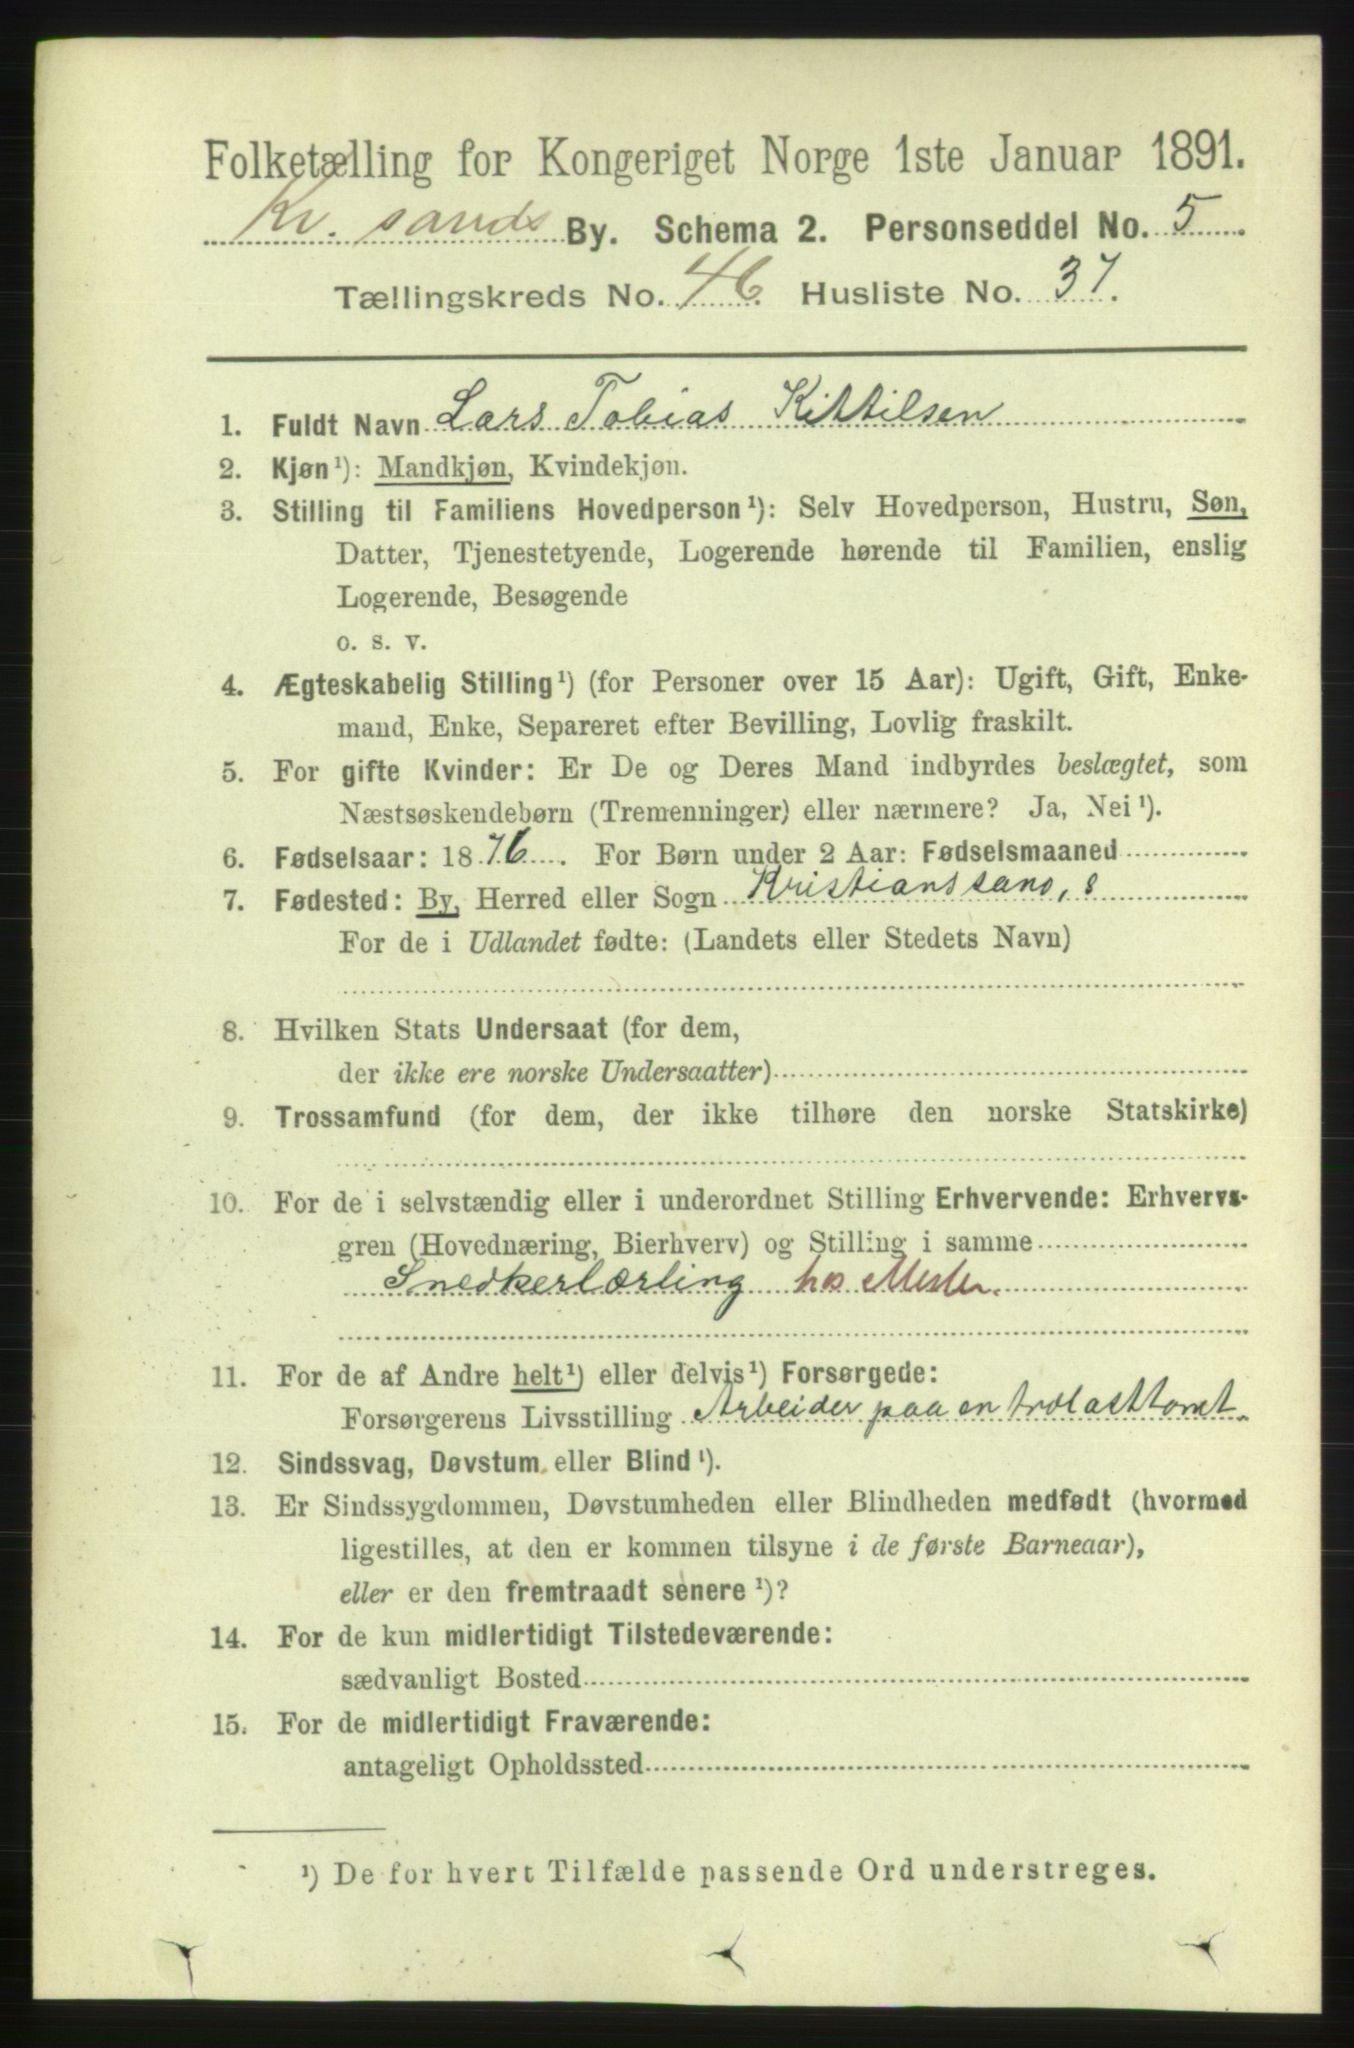 Folketælling for Kongeriget Norge 1ste Januar 1891.
Kr. sands By. Schema 2. Personseddel No. 5
Tællingskreds No. 46. Husliste No. 37.
1. Fuldt Navn Lars Tobias Kittilsen
2. Kjøn¹): Mandkjøn, Kvindekjøn.
3. Stilling til Familiens Hovedperson¹): Selv Hovedperson, Hustru, Søn,
Datter, Tjenestetyende, Logerende hørende til Familien, enslig
Logerende, Besøgende
o. s. v.
4. Ægteskabelig Stilling¹) (for Personer over 15 Aar): Ugift, Gift, Enke-
mand, Enke, Separeret efter Bevilling, Lovlig fraskilt.
5. For gifte Kvinder: Er De og Deres Mand indbyrdes beslægtet, som
Næstsøskendebørn (Tremenninger) eller nærmere? Ja, Nei¹).
6. Fødselsaar: 1876. For Børn under 2 Aar: Fødselsmaaned
7. Fødested: By, Herred eller Sogn Kristianssand, s
For de i Udlandet fødte: (Landets eller Stedets Navn)
8. Hvilken Stats Undersaat (for dem,
der ikke ere norske Undersaatter)
9. Trossamfund (for dem, der ikke tilhøre den norske Statskirke)
10. For de i selvstændig eller i underordnet Stilling Erhvervende: Erhvervs-
gren (Hovednæring, Bierhverv) og Stilling i samme
Snedkerlærling hos Mester.
11. For de af Andre helt¹) eller delvis¹) Forsørgede:
Forsørgerens Livsstilling Arbeider paa en trælasttomt
12. Sindssvag, Døvstum eller Blind¹).
13. Er Sindssygdommen, Døvstumheden eller Blindheden medfødt (hvormed
ligestilles, at den er kommen tilsyne i de første Barneaar),
eller er den fremtraadt senere¹)?
14. For de kun midlertidigt Tilstedeværende:
sædvanligt Bosted
15. For de midlertidigt Fraværende:
antageligt Opholdssted
¹) De for hvert Tilfælde passende Ord understreges.